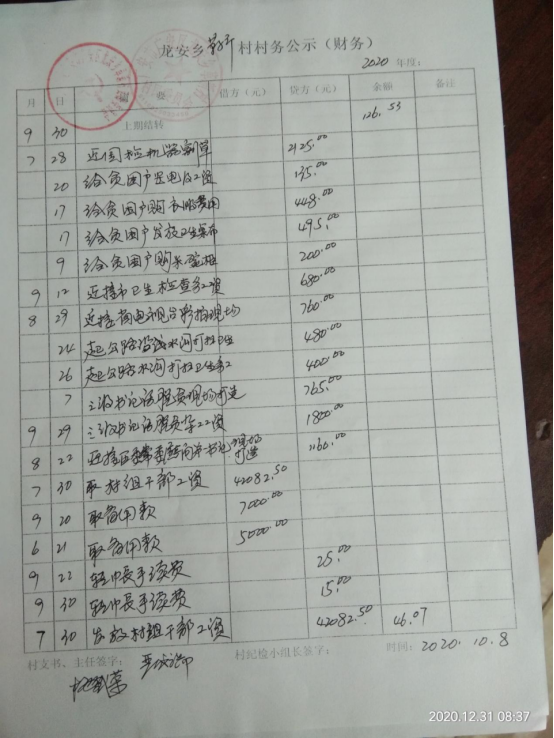 龙安乡 村村务公示（财务）
2020 年度：
月 日 摘 要 借方（元） 贷方（元） 余额 备注
9 30 上期结转 126.53
7 28 迎国检机器割草 2125.00
20 给贫困户买电及工资 135.00
17 给贫困户购衣服费用 448.00
17 给贫困户发放卫生采布 495.00
9 给贫困户购米 200.00
9 12 迎接市卫生检查务工资 680.00
8 29 迎接省电视台彩拍现场 760.00
24 赶公路沿线水沟打扫卫生 480.00
26 赶公路水沟打扫卫生务工 400.00
7 三级书记话脱贫现场打造 765.00
9 29 三级书记话脱贫务工工资 1800.00
8 22 迎接区 书记现场打造 1160.00
7 30 取村组干部工资 42082.50
9 20 取备用款 7000.00
6 21 取备用款 5000.00
9 22 转账手续费 25.00
9 30 转账手续费 15.00
7 30 发放村组干部工资 42082.50 46.07
村支书、主任签字： 村纪检小组长签字： 时间：2020.10.8
2020.12.31 08:37